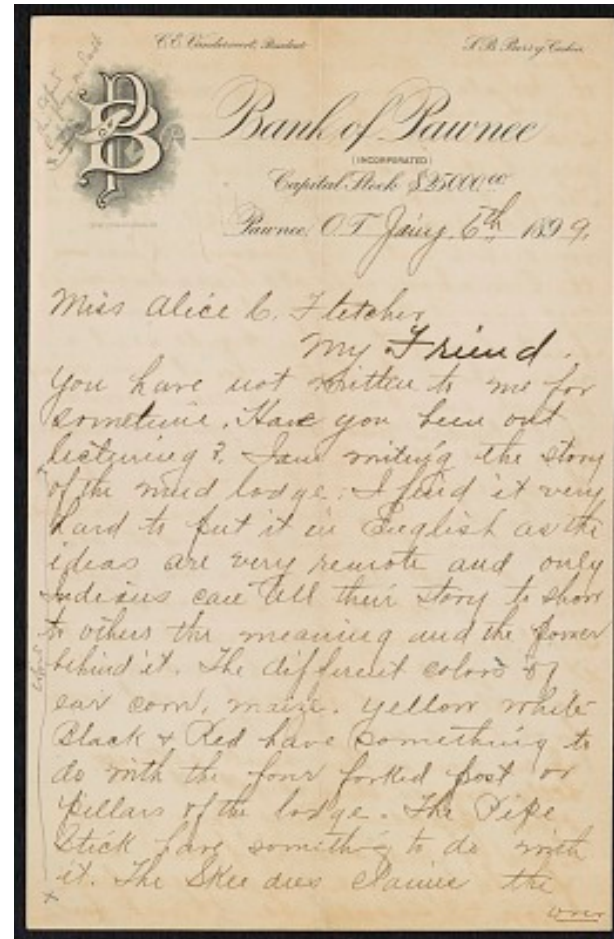 C.E. Vandervoort, President S.B. Berry, Cashier
B P
Bank of Pawnee
(INCORPORATED)
Capital Stock $25000.00
Pawnee, O.T. Jany. 6th 1899.
Miss Alice C. Fletcher
My Friend.
You have not written to me for
sometime. Have you been out
lecturing? I am writing the story
of the mud lodge. I find it very
hard to put it in English as the
ideas are very remote and only
Indians can tell their story to show
to others the meaning and the power
behind it. The different colors of
ear corn, maize. yellow white
Black & Red have something to
do with the four forked post or
Pillars of the lodge. The Pipe
Stick have something to do with
it. The Skee dees claime the
over